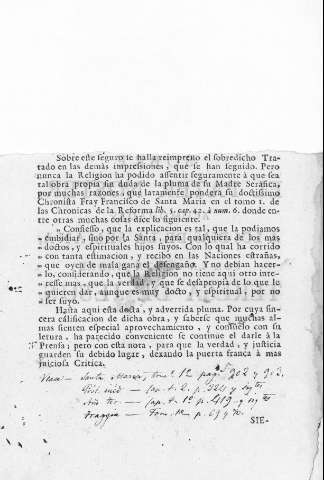 Sobre este seguro se halla reimpreso el sobredicho Tra-
tado en las demàs impressiones, que se han seguido. Pero
nunca la Religion ha podido assentir seguramente à que sea
tal obra propia sin duda de la pluma de su Madre Serafica,
por muchas razones, que latamente pondera su doctissimo
Chronista Fray Francisco de Santa Maria en el tomo 1. de
las Chronicas de la Reforma lib. 5. cap. 42. à num. 6. donde en-
tre otras muchas cosas dice lo siguiente.
„ Confiesso, que la explicacion es tal, que la podiamos
„ embidiar, sino por la Santa, para qualquiera de los mas
„ doctos, y espirituales hijos suyos. Con lo qual ha corrido
„ con tanta estimacion, y recibo en las Naciones estrañas,
„ que oyen de mala gana el desengaño. Y no debian hacer-
„ lo, considerando, que la Religion no tiene aqui otro inte-
„ resse mas, que la verdad, y que se desapropia de lo que le
„ quieren dar, aunque es muy docto, y espiritual, por no
„ ser suyo.
Hasta aqui esta docta, y advertida pluma. Por cuya sin-
cera calificacion de dicha obra, y saberse que muchas al-
mas sienten especial aprovechamiento, y consuelo con su
letura, ha parecido conveniente se continue el darle à la
Prensa; pero con esta nota, para que la verdad, y justicia
guarden su debido lugar, dexando la puerta franca à mas
juiciosa Critica.
Santa Maria, tom. 1º pag. 202 y
p. 224 y
p. 419 y
Fraggia — Tom. p. 69 y
SIE-